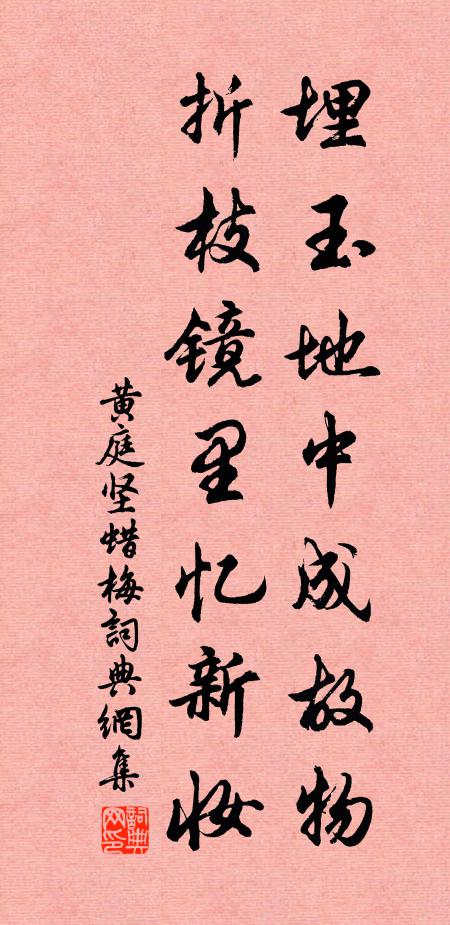 埋玉地中成故物
折枝镜里忆新妆
黄庭坚蜡梅詞典網集
詞典网印